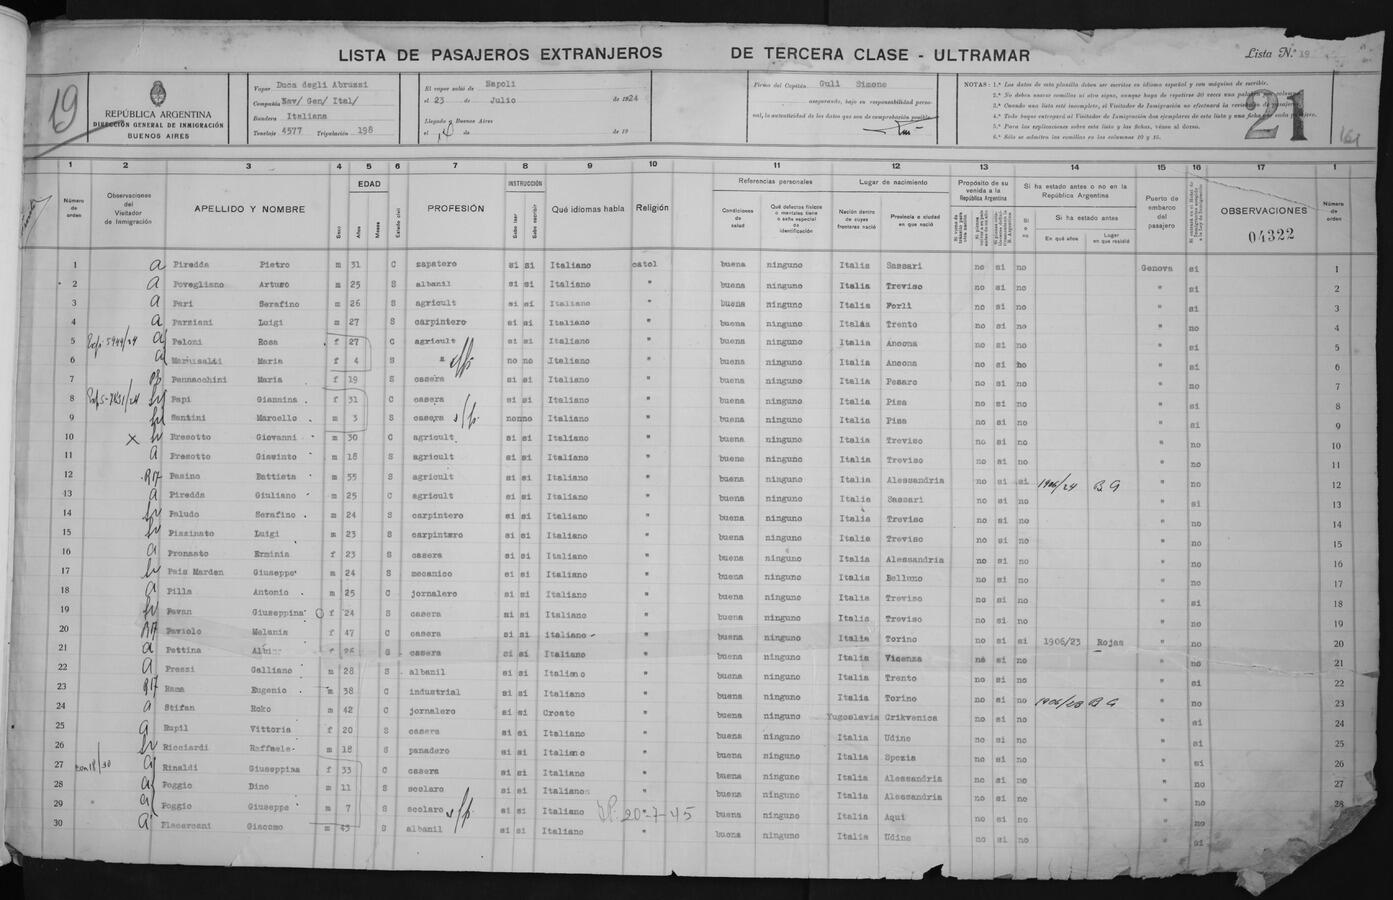 LISTA DE PASAJEROS EXTRANJEROS DE TERCERA CLASE - ULTRAMAR Lista N.º 19
19
REPÚBLICA ARGENTINA
DIRECCIÓN GENERAL DE INMIGRACIÓN
BUENOS AIRES
Vapor Duca degli Abruzzi
Compañía Nav/ Gen/ Ital/
Bandera Italiana
Tonelaje 4577 Tripulación 198
El vapor salió de Napoli
el 23 de Julio de 1924
Llegado a Buenos Aires
el de de 19
Firma del Capitán Guli Simone
asegurando, bajo su responsabilidad perso-
nal, la autenticidad de los datos que son de comprobación posible.
NOTAS: 1.ª Los datos de esta planilla deben ser escritos en idioma español y con máquina de escribir.
21
1 2 3 4 5 6 7 8 9 10 11 12 13 14 15 16 17 1
Número de orden
Observaciones del Visitador de Inmigración
APELLIDO Y NOMBRE
Sexo
EDAD
Años
Meses
Estado civil
PROFESIÓN
INSTRUCCIÓN
Sabe leer
Sabe escribir
Qué idiomas habla
Religión
Referencias personales
Condiciones de salud
Qué defectos físicos o mentales tiene o seña especial de identificación
Lugar de nacimiento
Nación dentro de cuyas fronteras nació
Provincia o ciudad en que nació
Propósito de su venida a la República Argentina
Si ha estado antes o no en la República Argentina
Si ha estado antes
En qué años
Lugar en que residió
Puerto de embarco del pasajero
OBSERVACIONES
04322
Número de orden
1 a Piredda Pietro m 31 C zapatero si si Italiano catol buena ninguno Italia Sassari no si no Genova si 1
2 a Povegliano Arturo m 25 S albanil si si Italiano " buena ninguno Italia Treviso no si no " si 2
3 a Pari Serafino m 26 S agricult si si Italiano " buena ninguno Italia Forli no si no " si 3
4 a Parziani Luigi m 27 S carpintero si si Italiano " buena ninguno Italia Trento no si no " si 4
5 a Peloni Rosa f 27 C agricult si si Italiano " buena ninguno Italia Ancona no si no " 5
6 a Maria f 4 S " s/p no no Italiano " buena ninguno Italia Ancona no si no " 6
7 Pennacchini Maria f 19 S casera si si Italiano " buena ninguno Italia Pesaro no si no " 7
8 Papi Giannina f 31 C casera si si Italiano " buena ninguno Italia Pisa no si no " si 8
9 Santini Marcello m 3 S casera s/p no no Italiano " buena ninguno Italia Pisa no si no " si 9
10 x Bresotto Giovanni m 30 C agricult si si Italiano " buena ninguno Italia Treviso no si no " no 10
11 a Fresotto Giacinto m 18 S agricult si si Italiano " buena ninguno Italia Treviso no si no " no 11
12 Pasino Battista m 55 S agricult si si Italiano " buena ninguno Italia Alessandria no si si B A " no 12
13 a Piredda Giuliano m 25 C agricult si si Italiano " buena ninguno Italia Sassari no si no " 13
14 Paludo Serafino m 24 S carpintero si si Italiano " buena ninguno Italia Treviso no si no " no 14
15 Pizzinato Luigi m 23 S carpintero si si Italiano " buena ninguno Italia Treviso no si no " no 15
16 a Pronsato Erminia f 23 S casera si si Italiano " buena ninguno Italia Alessandria no si no " no 16
17 Pais Marden Giuseppe m 24 S mecanico si si Italiano " buena ninguno Italia Belluno no si no " no 17
18 a Pilla Antonio m 25 C jornalero si si Italiano " buena ninguno Italia Treviso no si no " si 18
19 Pavan Giuseppina f 24 S casera si si Italiano " buena ninguno Italia Treviso no si no " no 19
20 Paviolo Melania f 47 C casera si si italiano " buena ninguno Italia Torino no si si 1906/23 Rojas " no 20
21 a Pettina f S casera si si Italiano " buena ninguno Italia Vicenza no si no " no 21
22 a Prezzi Galliano m 28 S albanil si si Italiano " buena ninguno Italia Trento no si no " si 22
23 Rama Eugenio m 38 C industrial si si Italiano " buena ninguno Italia Torino no si B A " no 23
24 a Stifan Roko m 42 C jornalero si si Croato " buena ninguno Yugoslavia Crikvenica no si no " si 24
25 a Rupil Vittoria f 20 S casera si si Italiano " buena ninguno Italia Udine no si no " no 25
26 Ricciardi Raffaele m 18 S panadero si si Italiano " buena ninguno Italia Spezia no si no " si 26
27 a Rinaldi Giuseppina f 33 C casera si si Italiano " buena ninguno Italia Alessandria no si no " no
28 a Poggio Dino m 11 S scolaro si si Italiano " buena ninguno Italia Alessandria no si no " no 28
29 a Poggio Giuseppe m 7 S scolaro s/p si si Italiano " buena ninguno Italia Aqui no si no " no
20-7-45
30 a Giacomo m S albanil si si Italiano " buena ninguno Italia Udine no si no " si